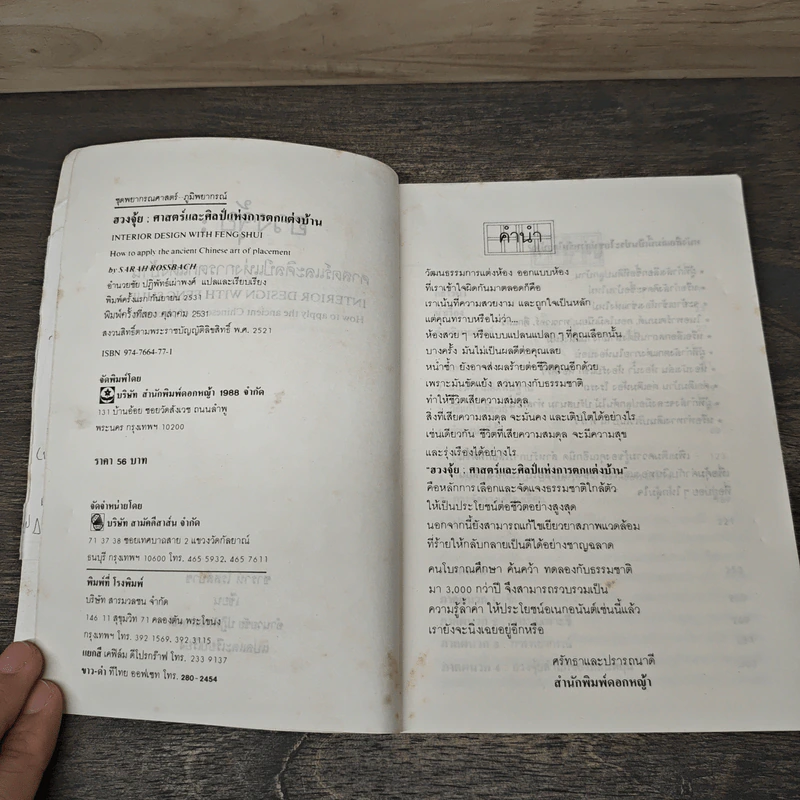 ชุดพยากรณศาสตร์-ภูมิพยากรณ์
ฮวงจุ้ย : ศาสตร์และศิลป์แห่งการตกแต่งบ้าน
INTERIOR DESIGN WITH FENG SHUI
How to apply the ancient Chinese art of placement
by SARAH ROSSBACH
อำนวยชัย ปฏิพัทธ์เผ่าพงศ์ แปลและเรียบเรียง
พิมพ์ครั้งแรก กันยายน 2531
พิมพ์ครั้งที่สอง ตุลาคม 2531
สงวนสิทธิ์ตามพระราชบัญญัติลิขสิทธิ์ พ.ศ. 2521
ISBN 974-7664-77-1
จัดพิมพ์โดย
บริษัท สำนักพิมพ์ดอกหญ้า 1988 จำกัด
131 บ้านอ้อย ซอยวัดสังเวช ถนนลำพู
พระนคร กรุงเทพฯ 10200
ราคา 56 บาท
จัดจำหน่ายโดย
บริษัท สามัคคีสาส์น จำกัด
71 37 38 ซอยเทศบาลสาย 2 แขวงวัดกัลยาณ์
ธนบุรี กรุงเทพฯ 10600 โทร. 465 5932, 465 7611
พิมพ์ที่ โรงพิมพ์
บริษัท สารมวลชน จำกัด
146 11 สุขุมวิท 71 คลองตัน พระโขนง
กรุงเทพฯ โทร. 392 1569, 392 3115
แยกสี เคฟิล์ม ดีโปรกร๊าฟ โทร. 233 9137
ขาว-ดำ ทีไทย ออฟเซท โทร. 280-2454
คำนำ
วัฒนธรรมการแต่งห้อง ออกแบบห้อง
ที่เราเข้าใจผิดกันมาตลอดก็คือ
เราเน้นที่ความสวยงาม และถูกใจเป็นหลัก
แต่คุณทราบหรือไม่ว่า...
ห้องสวยๆ หรือแบบแปลนแปลกๆ ที่คุณเลือกนั้น
บางครั้ง มันไม่เป็นผลดีต่อคุณเลย
หนำซ้ำ ยังอาจส่งผลร้ายต่อชีวิตคุณอีกด้วย
เพราะมันขัดแย้ง สวนทางกับธรรมชาติ
ทำให้ชีวิตเสียความสมดุล
สิ่งที่เสียความสมดุล จะมั่นคง และเติบโตได้อย่างไร
เช่นเดียวกัน ชีวิตที่เสียความสมดุล จะมีความสุข
และรุ่งเรืองได้อย่างไร
"ฮวงจุ้ย : ศาสตร์และศิลป์แห่งการตกแต่งบ้าน"
คือหลักการเลือกและจัดแจงธรรมชาติใกล้ตัว
ให้เป็นประโยชน์ต่อชีวิตอย่างสูงสุด
นอกจากนี้ยังสามารถแก้ไขเยียวยาสภาพแวดล้อม
ที่ร้ายให้กลับกลายเป็นดีได้อย่างชาญฉลาด
คนโบราณศึกษา ค้นคว้า ทดลองกับธรรมชาติ
มา 3,000 กว่าปี จึงสามารถรวบรวมเป็น
ความรู้ล้ำค่า ให้ประโยชน์อเนกอนันต์เช่นนี้แล้ว
เรายังจะนิ่งเฉยอยู่อีกหรือ
ศรัทธาและปรารถนาดี
สำนักพิมพ์ดอกหญ้า